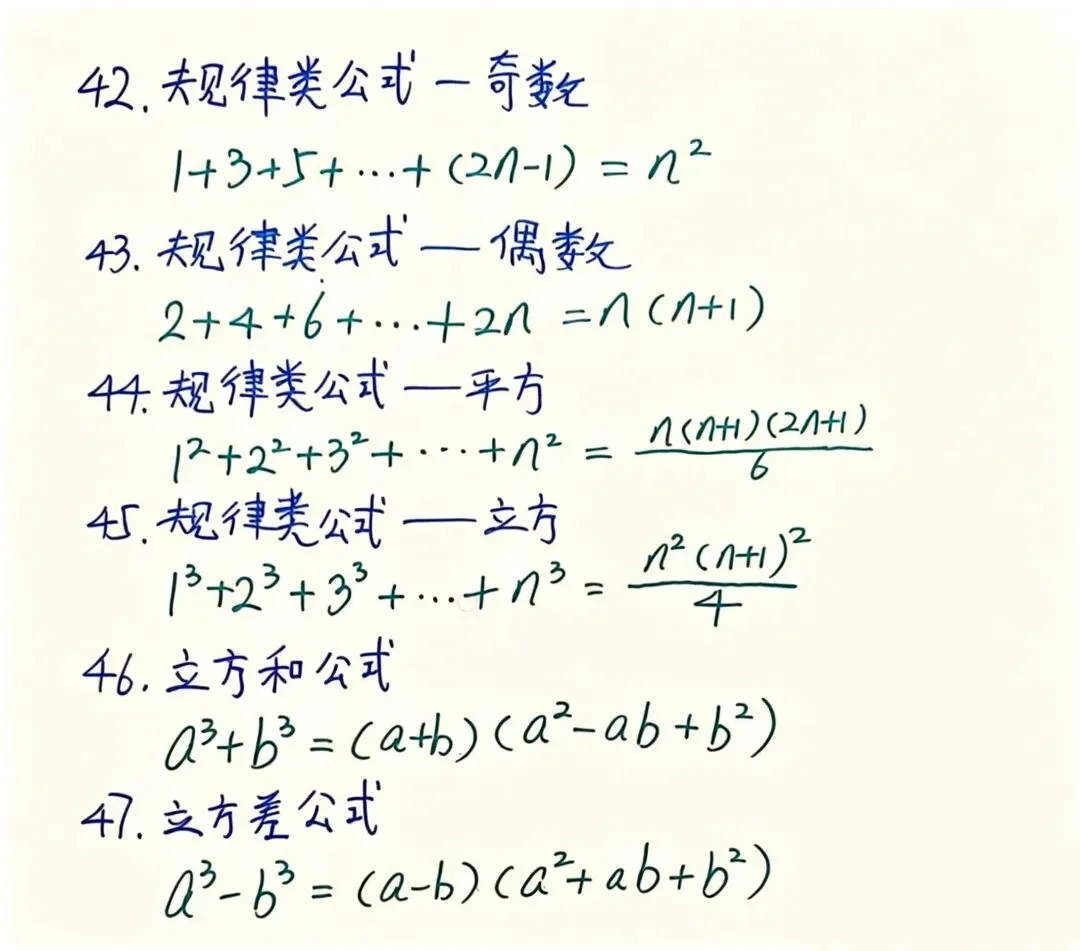 42. 规律类公式—奇数
1+3+5+⋯+(2n-1) = n²
43. 规律类公式——偶数
2+4+6+⋯+2n =n(n+1)
44. 规律类公式——平方
1²+2²+3²+⋯+n² = n(n+1)(2n+1)/6
45. 规律类公式——立方
1³+2³+3³+⋯+n³ = n²(n+1)²/4
46. 立方和公式
a³+b³ = (a+b)(a²-ab+b²)
47. 立方差公式
a³-b³ = (a-b)(a²+ab+b²)